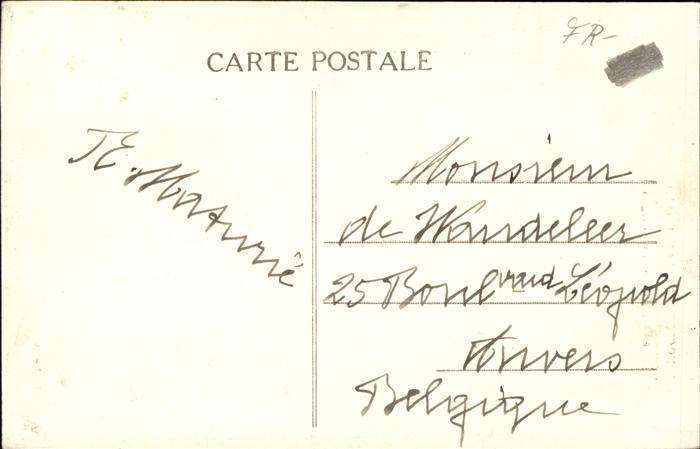 FR-
CARTE POSTALE
Th. Maturié
Monsieur
de Wandeleer
25 Boulvard Léopold
Anvers
Belgique